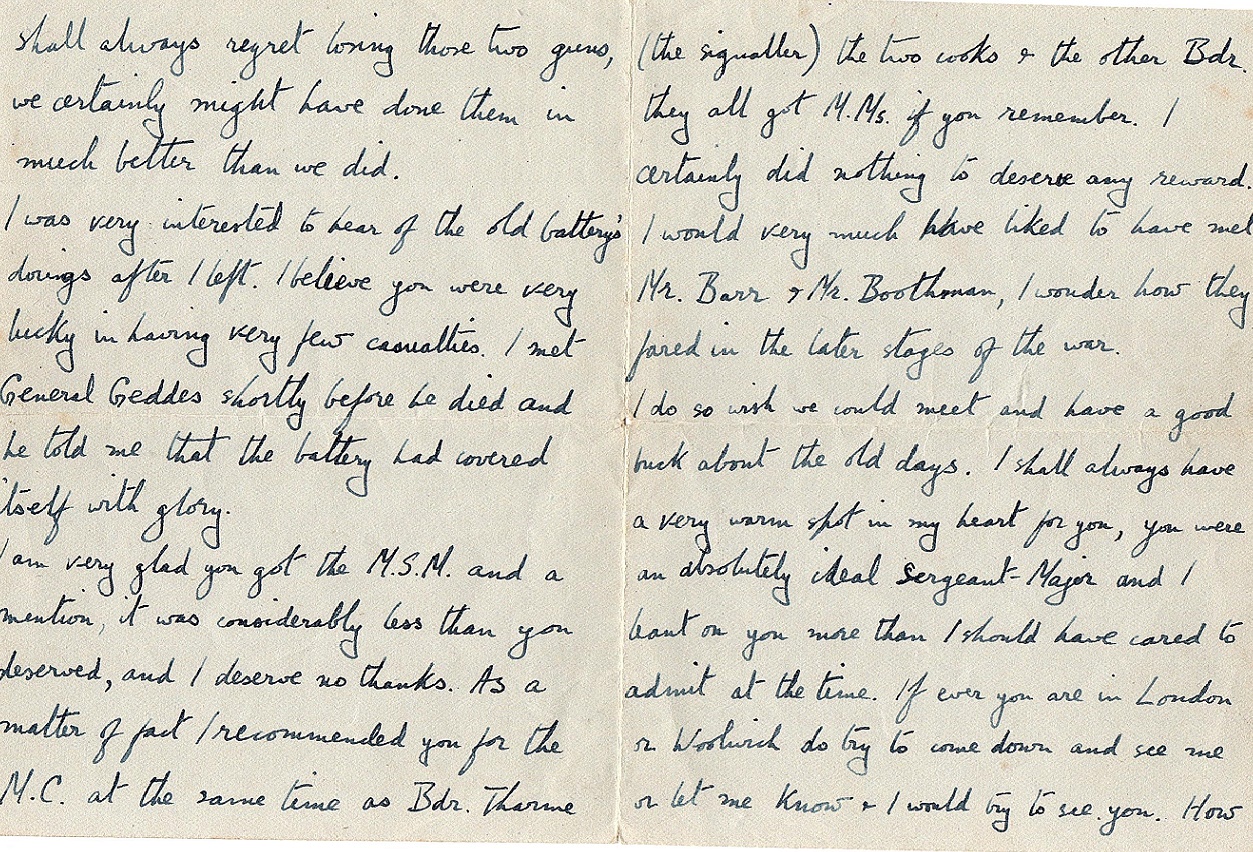 shall always regret losing those two guns,
we certainly might have done them in
much better than we did.
I was very interested to hear of the old battery's
doings after I left. I believe you were very
lucky in having very few casualties. I met
General Geddes shortly before he died and
he told me that the battery had covered
itself with glory.
I am very glad you got the M.S.M. and a
mention, it was considerably less than you
deserved, and I deserve no thanks. As a
matter of fact I recommended you for the
M.C. at the same time as Bdr. Tharme
(the signaller) the two cooks & the other Bdr.
they all got M.Ms. if you remember. I
certainly did nothing to deserve any reward.
I would very much have liked to have met
Mr. Barr & Mr. Boothman, I wonder how they
fared in the later stages of the war.
I do so wish we could meet and have a good
buck about the old days. I shall always have
a very warm spot in my heart for you, you were
an absolutely ideal Sergeant-Major and I
leant on you more than I should have cared to
admit at the time. If ever you are in London
or Woolwich do try to come down and see me
or let me know & I would try to see you. How